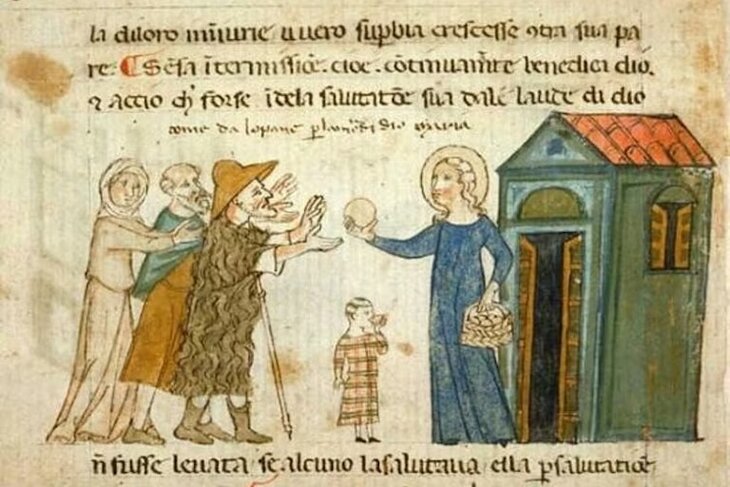 la di loro iniurie uuero supbia crescesse ɔtra sua pa
re. Sensa itermissiõe. cioe. cõtinuamẽte benedicea dio.
⁊ accio ch forse i dela salutatiõe sua dale laude di dio
come da lo pane p lamor di dio maria
nõ fusse levata se alcuno la salutaua ella p salutatiõe